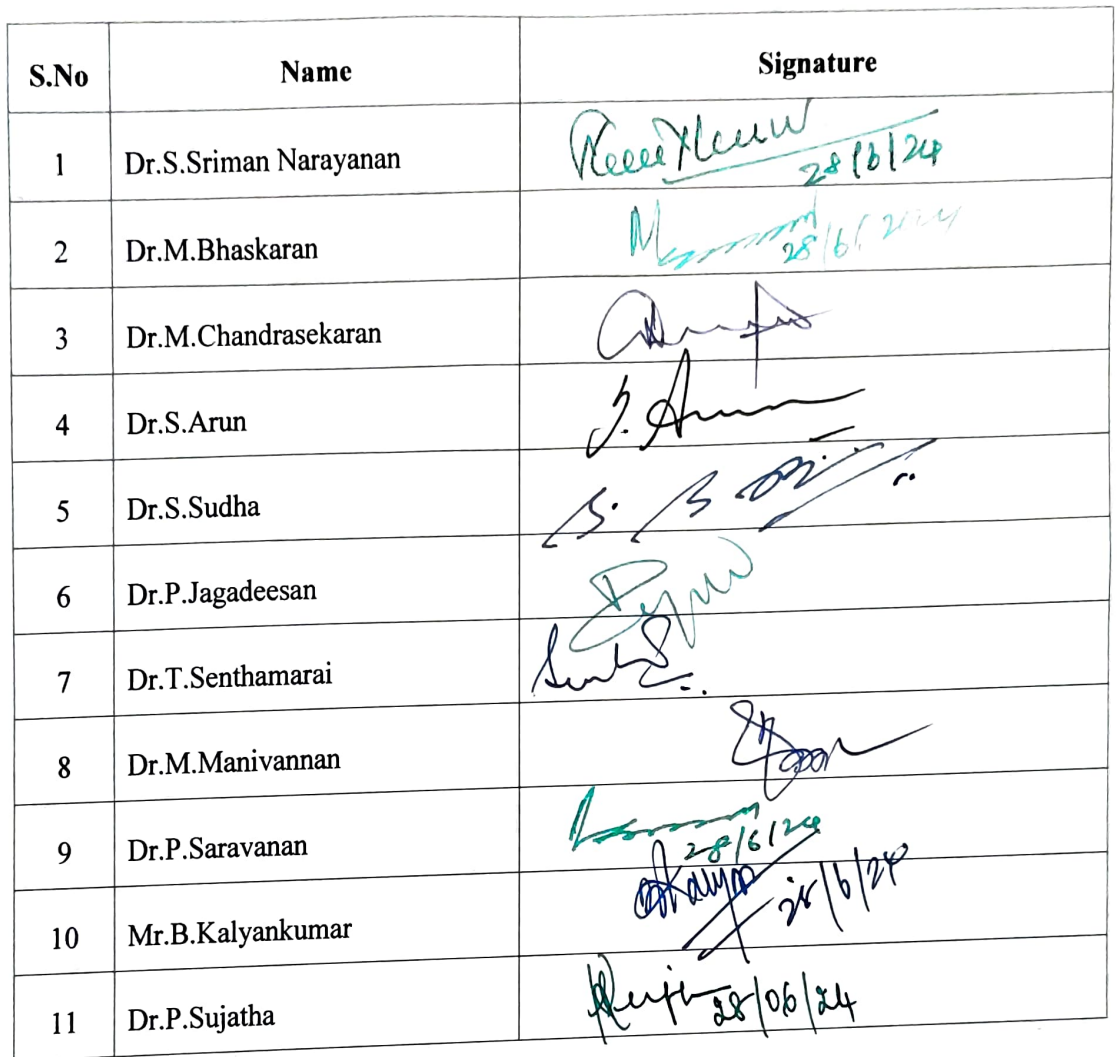 S.No Name Signature
1 Dr.S.Sriman Narayanan 28/6/24
2 Dr.M.Bhaskaran 28/6/2024
3 Dr.M.Chandrasekaran
4 Dr.S.Arun S. Arun
5 Dr.S.Sudha
6 Dr.P.Jagadeesan
7 Dr.T.Senthamarai
8 Dr.M.Manivannan
9 Dr.P.Saravanan 28/6/24
10 Mr.B.Kalyankumar 28/6/24
11 Dr.P.Sujatha 28/06/24